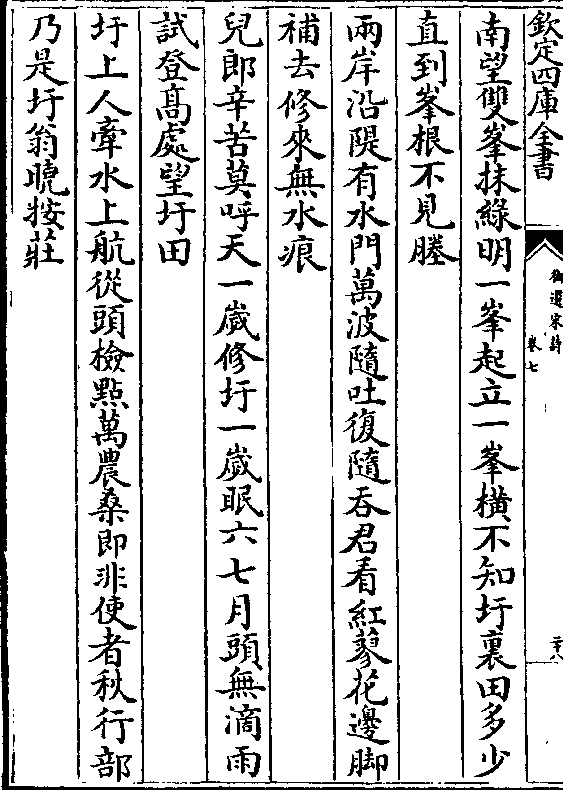 欽定四庫全書
御選宋詩
卷七
二十八
南望雙峯抹綠明一峯起立一峯橫不知圩裏田多少
直到峯根不見塍
兩岸沿隄有水門萬波隨吐復隨吞君看紅蓼花邊脚
補去修來無水痕
兒郎辛苦莫呼天一歲修圩一歲眠六七月頭無滴雨
試登髙處望圩田
圩上人牽水上航從頭檢點萬農桑即非使者秋行部
乃是圩翁曉按莊